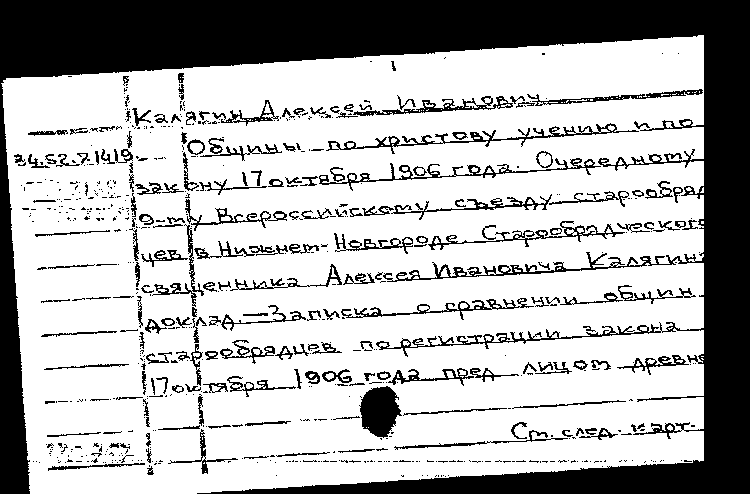 Калягин, Алексей Иванович
34.52.7.1419 Общины по христову учению и по
закону 17 октября 1906 года. Очередному
9-му Всероссийскому съезду старообряд
цев в Нижнем-Новгороде. Старообрядческого
священника Алексея Ивановича Калягина
доклад.—Записка о сравнении общин
старообрядцев по регистрации закона
17 октября 1906 года пред лицом древне
См. след. карт.